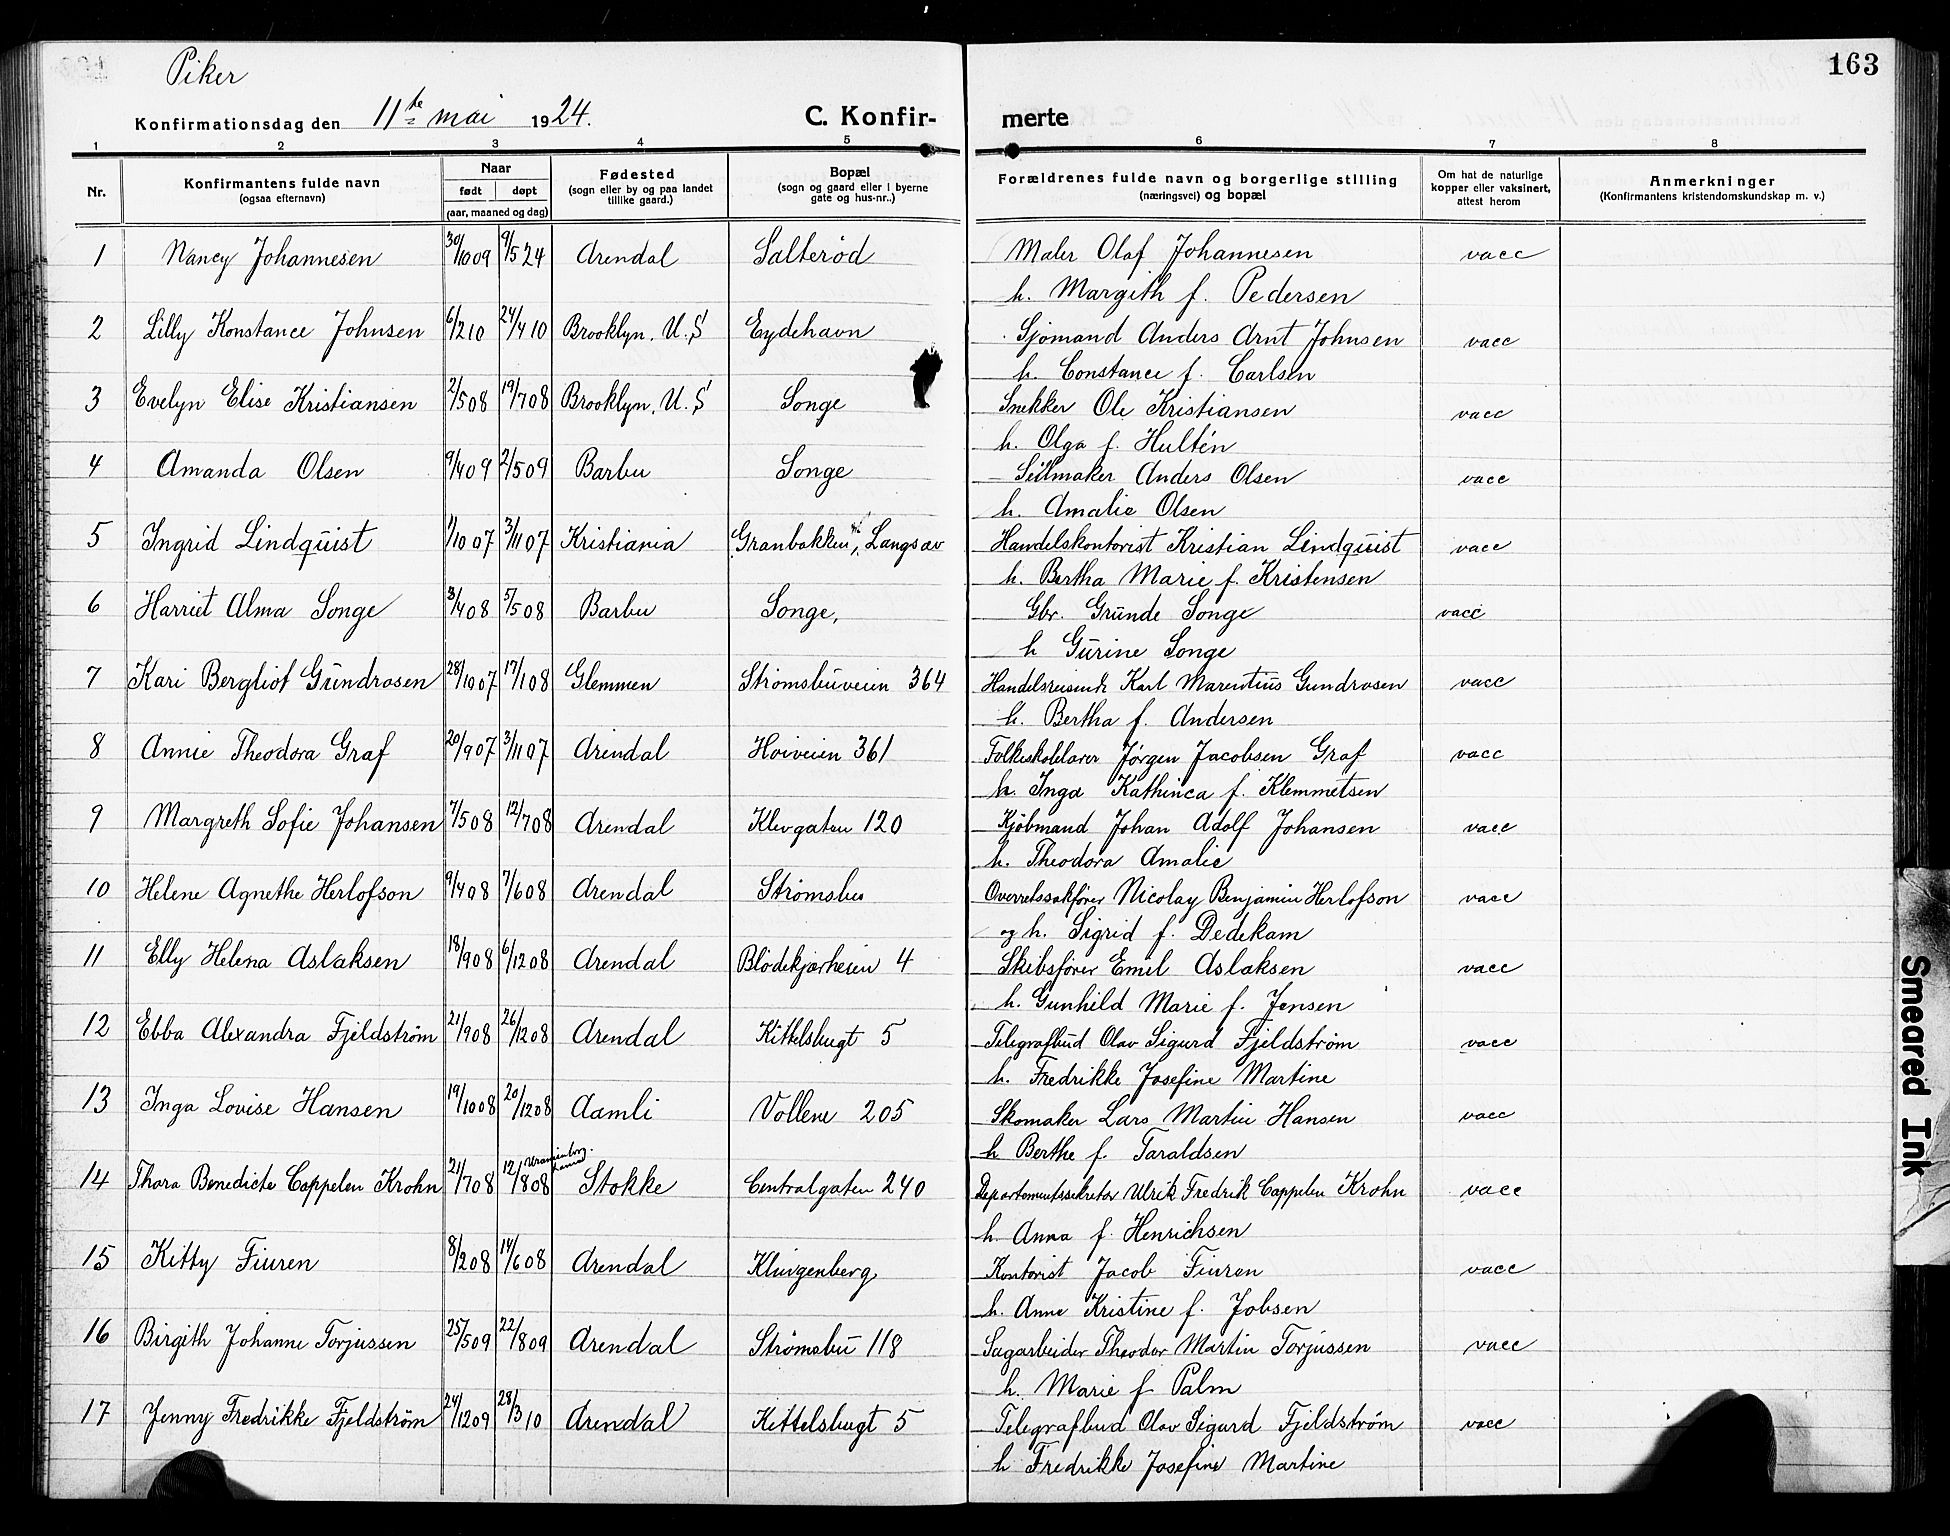 163
Piker
Konfirmationsdag den 11te mai 1924. C. Konfir- merte
1 2 3 4 5 6 7 8
Nr. Konfirmantens fulde navn (ogsaa efternavn) Naar født døpt (aar, maaned og dag) Fødested (sogn eller by og paa landet tillike gaard.) Bopæl (sogn og gaard eller i byerne gate og hus-nr..) Forældrenes fulde navn og borgerlige stilling (næringsvei) og bopæl Om hat de naturlige kopper eller vaksinert, attest herom Anmerkninger (Konfirmantens kristendomskundskap m. v.)
1 Nancy Johannesen 30/10 09 9/5 24 Arendal Salterød Maler Olaf Johannesen vacc
h. Margith f. Pedersen
2 Lilly Konstance Johnsen 6/2 10 24/4 10 Brooklyn, U.S Eydehavn Sjømand Anders Arnt Johnsen vacc
h. Constance f. Carlsen
3 Evelyn Elise Kristiansen 2/5 08 19/7 08 Brooklyn, U.S Songe Snekker Ole Kristiansen vacc
h. Olga f. Hultén
4 Amanda Olsen 9/4 09 2/5 09 Barbu Songe Seilmaker Anders Olsen vacc
h. Amalie Olsen
5 Ingrid Lindquist 1/10 07 3/11 07 Kristiania Granbakken, Langsæv Handelskontorist Kristian Lindquist vacc
h. Bertha Marie f. Kristensen
6 Harriet Alma Songe 3/4 08 5/5 08 Barbu Songe, Gbr. Grunde Songe vacc
h Gurine Songe
7 Kari Bergliot Gundrosen 28/10 07 17/1 08 Glemmen Strømsbuveien 364 Handelsreisende Karl Marentius Gundrosen vacc
h. Bertha f. Andersen
8 Annie Theodora Graf 20/9 07 3/11 07 Arendal Høiveien 361 Folkeskolelærer Jørgen Jacobsen Graf vacc
h. Inga Kathinca f. Klemmetsen
9 Margreth Sofie Johansen 7/5 08 12/7 08 Arendal Klevgaten 120 Kjøbmand Johan Adolf Johansen vacc
h. Theodora Amalie
10 Helene Agnethe Herlofson 9/4 08 7/6 08 Arendal Strømsbu Overretssakfører Nicolay Benjamin Herlofson vacc
og h. Sigrid f. Dedekam
11 Elly Helena Aslaksen 18/9 08 6/12 08 Arendal Blødekjærheien 4 Skibsfører Emil Aslaksen vacc
h. Gunhild Marie f. Jensen
12 Ebba Alexandra Fjeldstrøm 21/9 08 26/12 08 Arendal Kittelsbugt 5 Telegrafbud Olav Sigurd Fjeldstrøm vacc
h. Fredrikke Josefine Martine
13 Inga Lovise Hansen 19/10 08 20/12 08 Aamli Vollene 205 Skomaker Lars Martin Hansen vacc
h Berthe f Taraldsen
Uranienborg
14 Thora Benedicte Cappelen Krohn 21/7 08 12/8 08 Stokke Centralgaten 240 Departementssekretær Ulrik Fredrik Cappelen Krohn vacc
h. Anna f. Henrichsen
15 Kitty Fiuren 8/2 08 14/6 08 Arendal Klingenberg Kontorist Jacob Fiuren vacc
h. Anne Kristine f. Jobsen
16 Birgith Johanne Torjussen 25/5 09 22/8 09 Arendal Strømsbu 118 Sagarbeider Theodor Martin Torjussen vacc
h. Marie f Palm
17 Jenny Fredrikke Fjeldstrøm 24/12 09 28/3 10 Arendal Kittelsbugt 5 Telegrafbud Olav Sigurd Fjeldstrøm vacc
h Fredrikke Josefine Martine
Smeared Ink